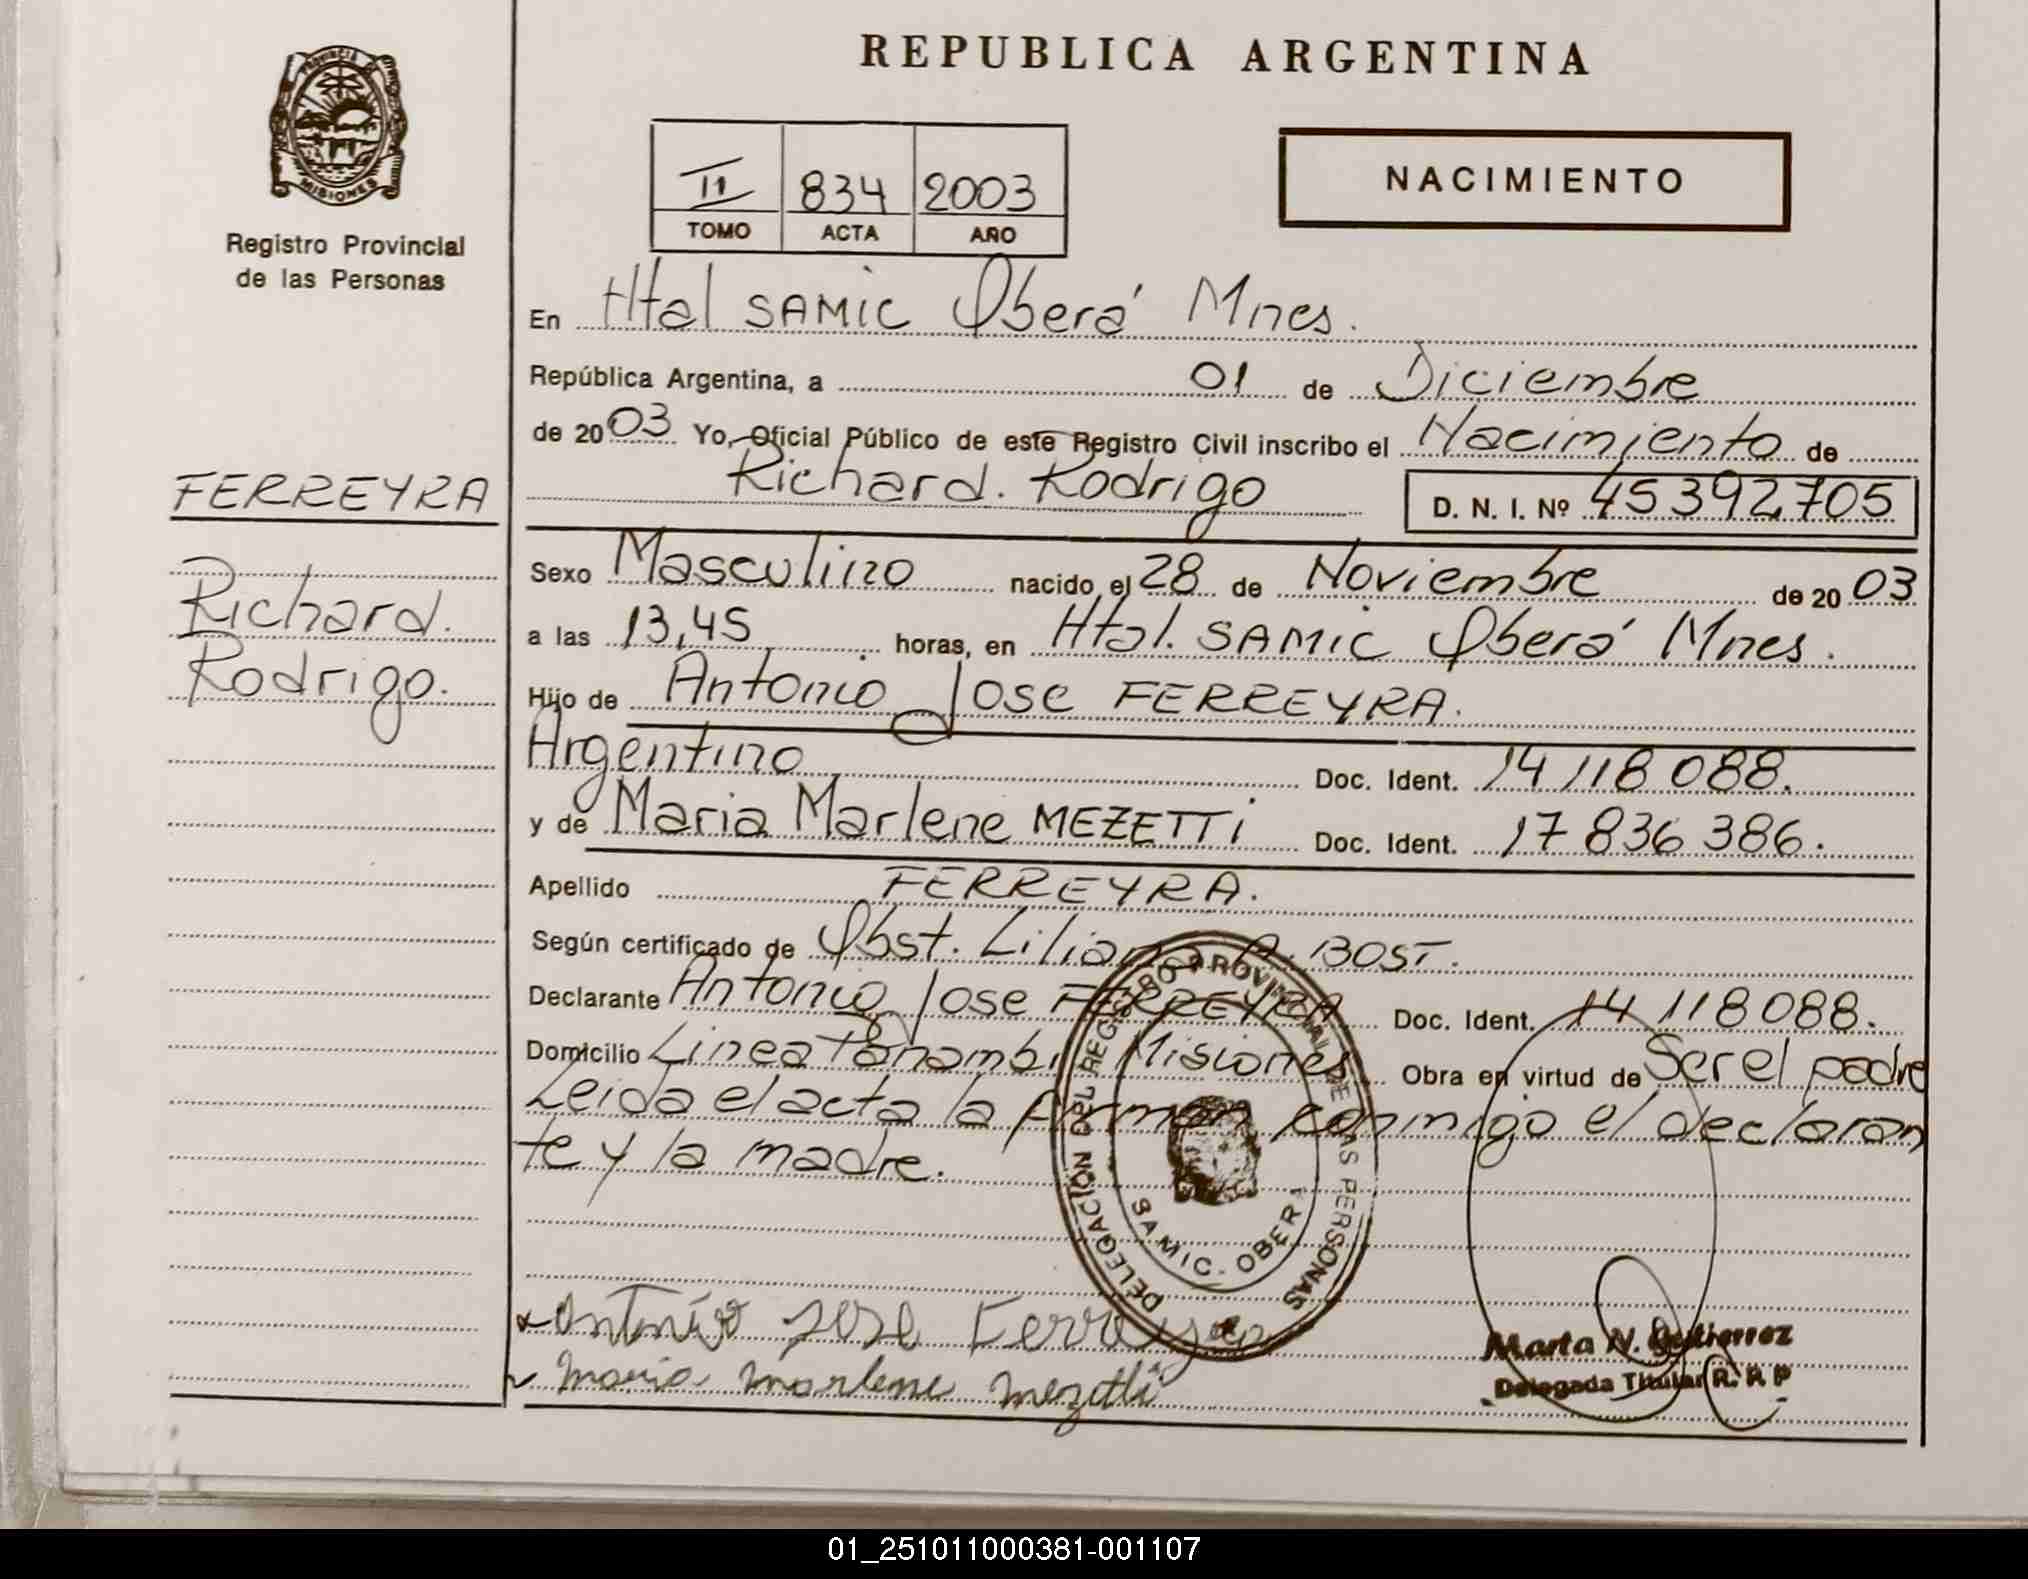 REPUBLICA ARGENTINA
PROVINCIA D
MISIONES
Registro Provincial
de las Personas
II 834 2003
TOMO ACTA AÑO
NACIMIENTO
En Htal SAMIC Oberá Mnes.
República Argentina, a 01 de Diciembre
de 2003 Yo, Oficial Público de este Registro Civil inscribo el Nacimiento de
Richard. Rodrigo D. N. I. Nº 45392705
FERREYRA
Richard.
Rodrigo.
Sexo Masculino nacido el 28 de Noviembre de 2003
a las 13,45 horas, en Htal. SAMIC Oberá Mnes.
Hijo de Antonio Jose FERREYRA.
Argentino Doc. Ident. 14 118 088.
y de Maria Marlene MEZETTi Doc. Ident. 17 836 386.
Apellido FERREYRA.
Según certificado de Obst. Liliana A. BOST.
Declarante Antonio Jose FERREYRA Doc. Ident. 14 118 088.
Domicilio Linea Panambi Misiones Obra en virtud de Ser el padre
Leida el acta la firman conmigo el declaran
te y la madre.
DELEGACION DEL REGISTRO PROVINCIAL DE LAS PERSONAS
SAMIC - OBERA
Antonio Jose Ferreyra
Maria Marlene Mezetti
Marta N. Gutierrez
Delegada Titular R. P. P
01_251011000381-001107